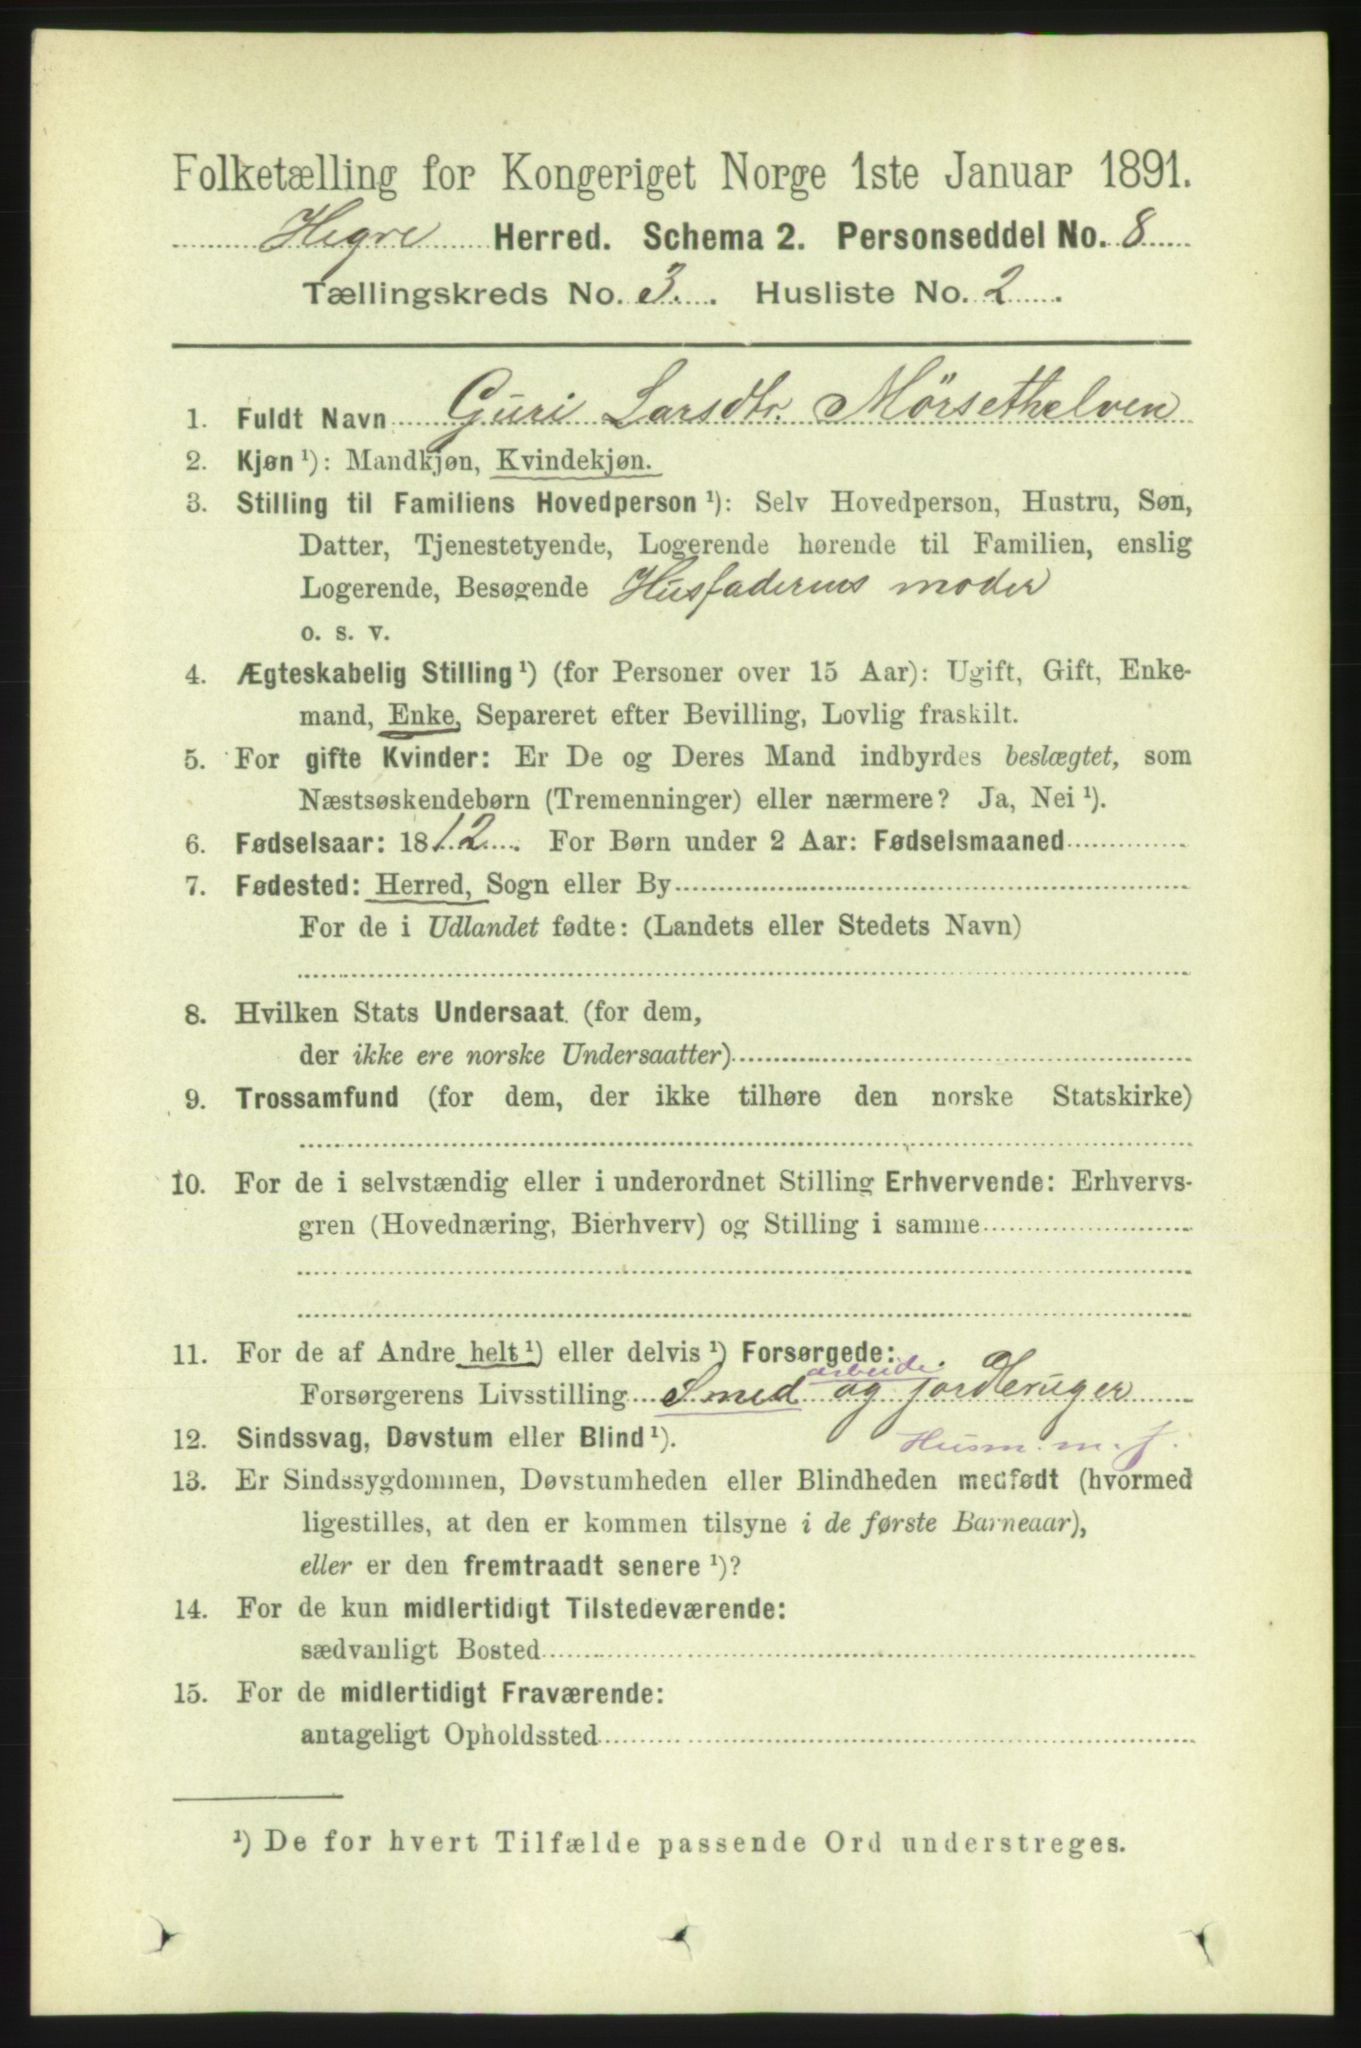 Folketælling for Kongeriget Norge 1ste Januar 1891.
Hegre Herred. Schema 2. Personseddel No. 8
Tællingskreds No. 3. Husliste No. 2
1. Fuldt Navn Guri Larsdtr. Mørsethelven
2. Kjøn ¹): Mandkjøn, Kvindekjøn.
3. Stilling til Familiens Hovedperson ¹): Selv Hovedperson, Hustru, Søn,
Datter, Tjenestetyende, Logerende hørende til Familien, enslig
Logerende, Besøgende Husfaderens moder
o. s. v.
4. Ægteskabelig Stilling ¹) (for Personer over 15 Aar): Ugift, Gift, Enke-
mand, Enke, Separeret efter Bevilling, Lovlig fraskilt.
5. For gifte Kvinder: Er De og Deres Mand indbyrdes beslægtet, som
Næstsøskendebørn (Tremenninger) eller nærmere? Ja, Nei ¹).
6. Fødselsaar: 1812. For Børn under 2 Aar: Fødselsmaaned
7. Fødested: Herred, Sogn eller By
For de i Udlandet fødte: (Landets eller Stedets Navn)
8. Hvilken Stats Undersaat (for dem,
der ikke ere norske Undersaatter)
9. Trossamfund (for dem, der ikke tilhøre den norske Statskirke)
10. For de i selvstændig eller i underordnet Stilling Erhvervende: Erhvervs-
gren (Hovednæring, Bierhverv) og Stilling i samme
11. For de af Andre helt ¹) eller delvis ¹) Forsørgede:
arbeide
Forsørgerens Livsstilling Smed og jordbruger
12. Sindssvag, Døvstum eller Blind ¹). Husm. m. j.
13. Er Sindssygdommen, Døvstumheden eller Blindheden medfødt (hvormed
ligestilles, at den er kommen tilsyne i de første Barneaar),
eller er den fremtraadt senere ¹)?
14. For de kun midlertidigt Tilstedeværende:
sædvanligt Bosted
15. For de midlertidigt Fraværende:
antageligt Opholdssted
¹) De for hvert Tilfælde passende Ord understreges.